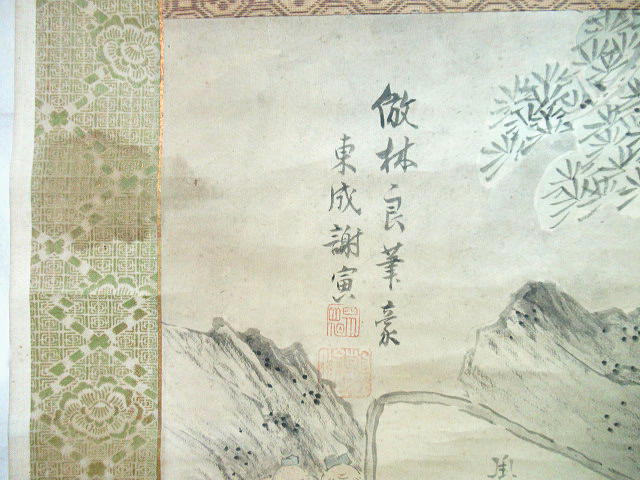 倣林良筆意
東成謝寅